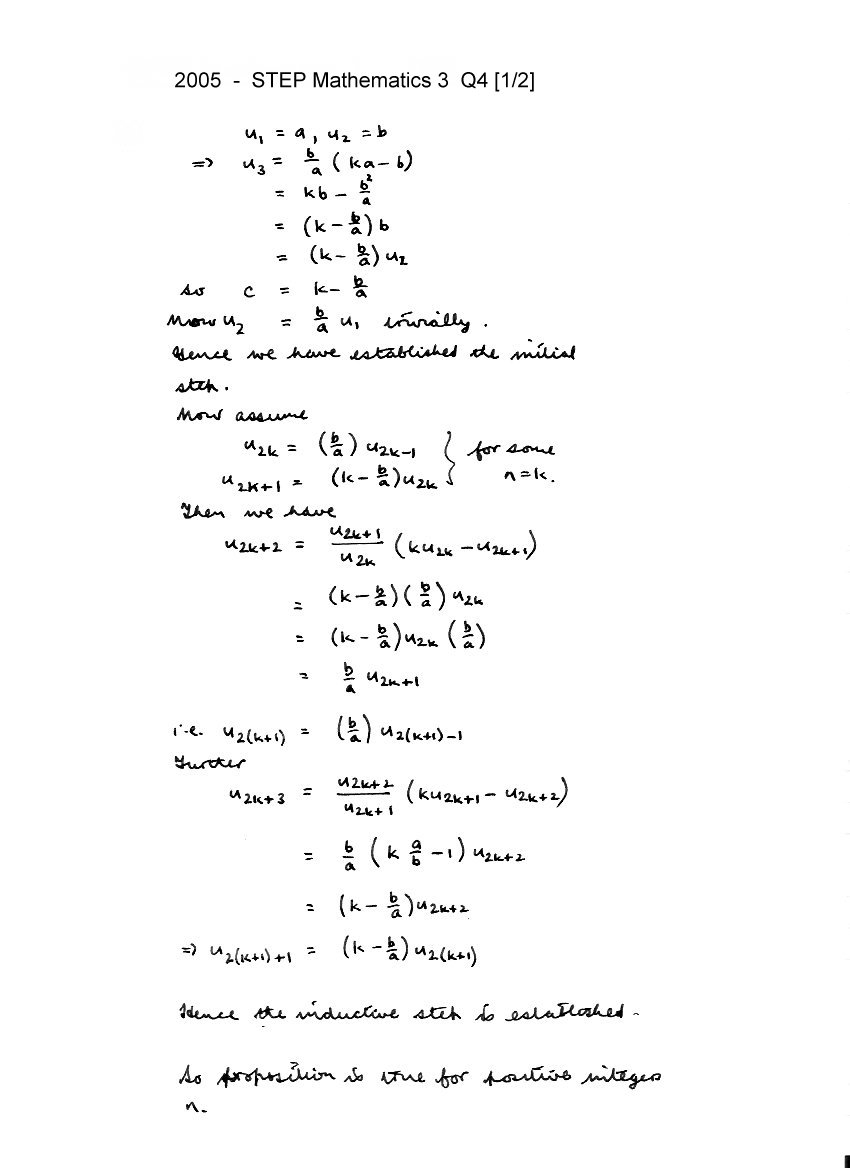 2005 - STEP Mathematics 3 Q4 [1/2]
u₁ = a, u₂ = b
=> u₃ = b/a (ka - b)
= kb - b²/a
= (k - b/a) b
= (k - b/a) u₂
so c = k - b/a
Now u₂ = b/a u₁ trivially.
Hence we have established the initial
step.
Now assume
u₂ₖ = (b/a) u₂ₖ₋₁ } for some
u₂ₖ₊₁ = (k - b/a) u₂ₖ } n = k.
Then we have
u₂ₖ₊₂ = u₂ₖ₊₁/u₂ₖ (ku₂ₖ - u₂ₖ₊₁)
= (k - b/a)(b/a) u₂ₖ
= (k - b/a) u₂ₖ (b/a)
= b/a u₂ₖ₊₁
i.e. u₂₍ₖ₊₁₎ = (b/a) u₂₍ₖ₊₁₎₋₁
Further
u₂ₖ₊₃ = u₂ₖ₊₂/u₂ₖ₊₁ (ku₂ₖ₊₁ - u₂ₖ₊₂)
= b/a (k a/b - 1) u₂ₖ₊₂
= (k - b/a) u₂ₖ₊₂
=> u₂₍ₖ₊₁₎₊₁ = (k - b/a) u₂₍ₖ₊₁₎
Hence the inductive step is established.
So proposition is true for positive integers
n.